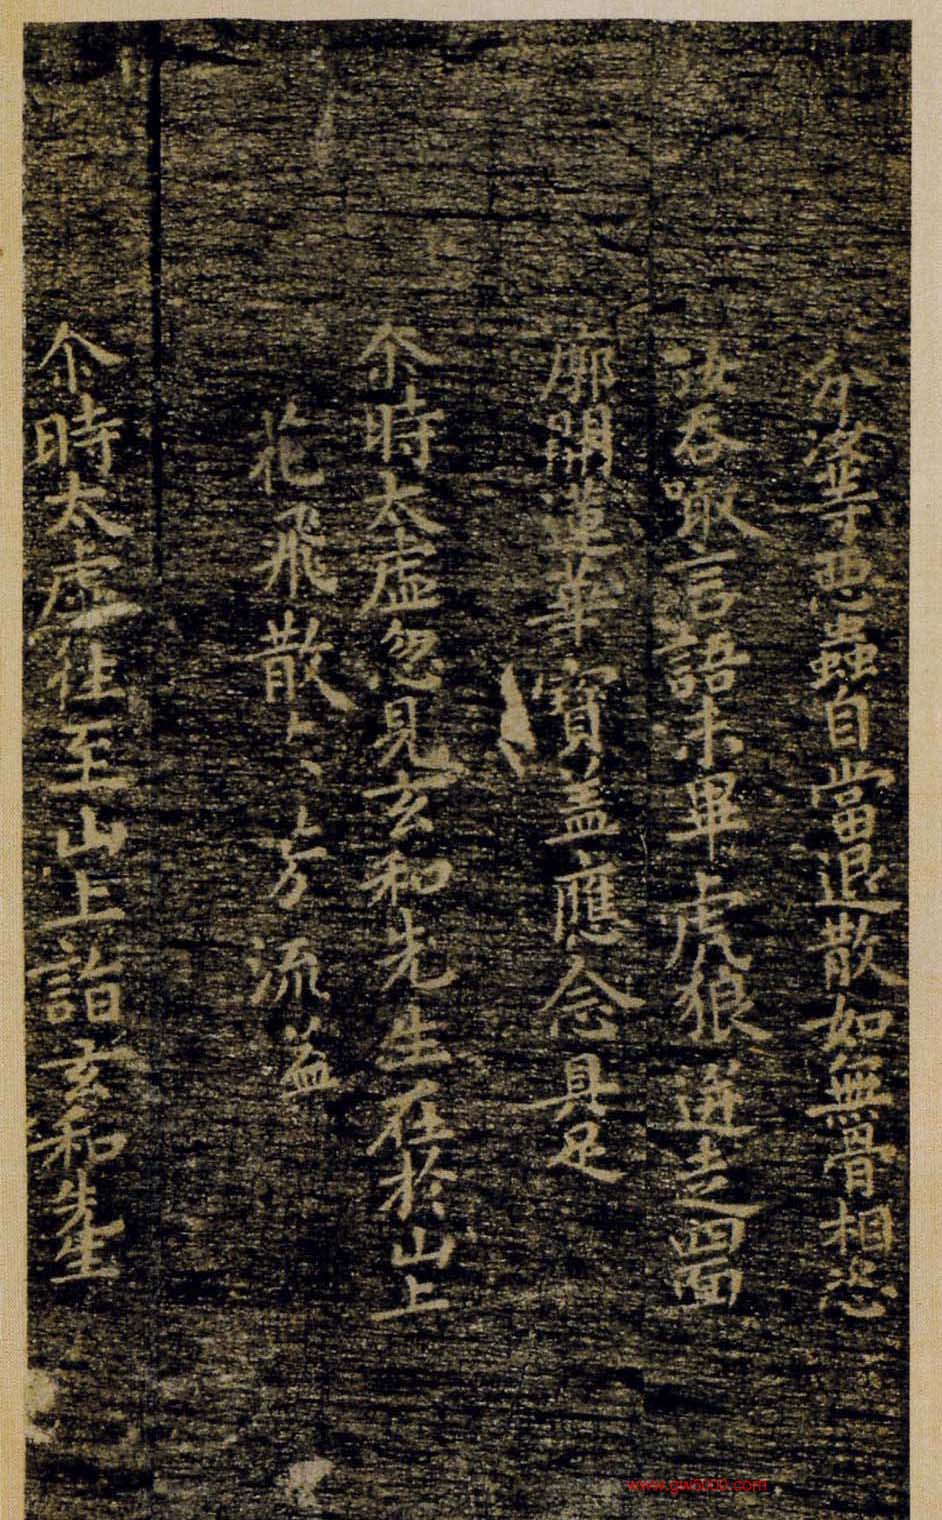 分等惡蟲自當退散如無骨相恣
汝吞噉言語未畢虎狼迸走四面
廓明蓮華寶盖應念具足
尒時太虛忽見玄和先生在於山上
花飛散方流盖
尒時太虛往至山上詣玄和先生
www.gw5000.com